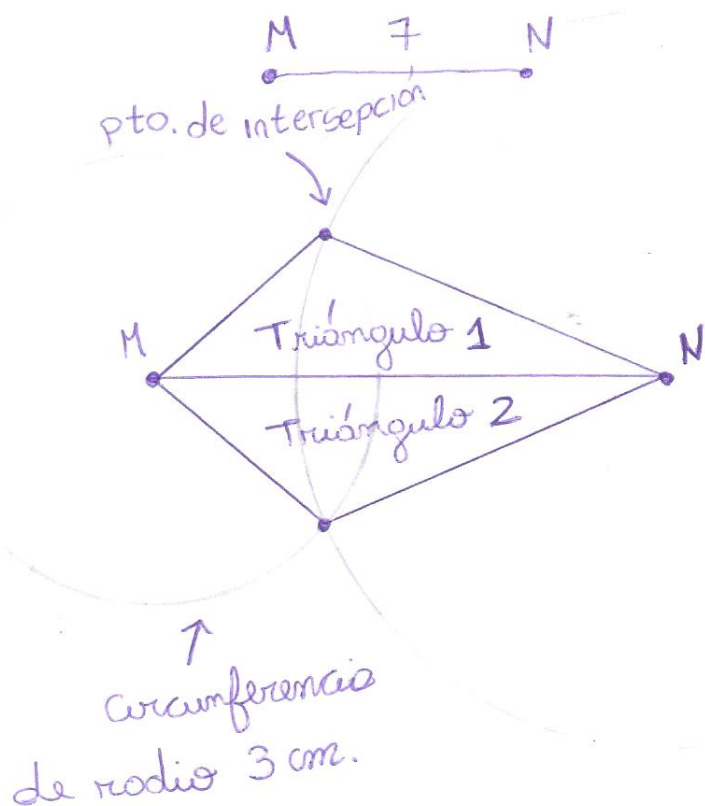 M 7 N
pto. de intersepción
M
Triángulo 1
N
Triángulo 2
Circunferencia
de radio 3 cm.